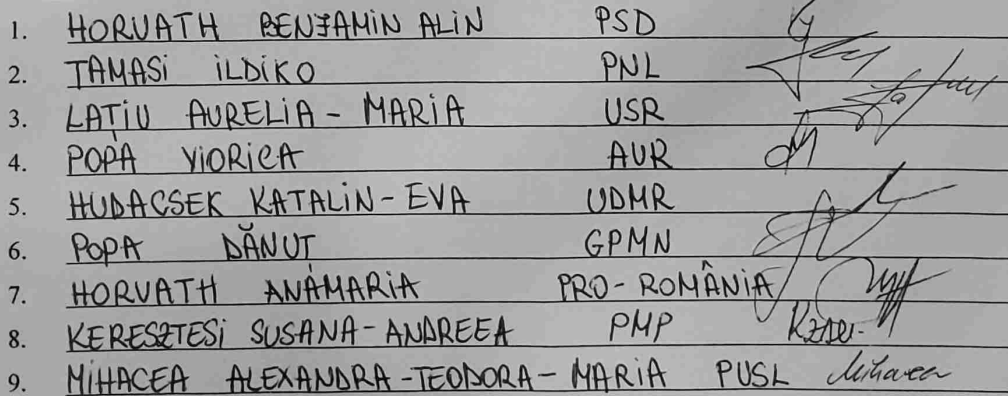 1. HORVATH BENJAMIN ALIN PSD
2. TAMASi iLDiKO PNL
3. LAȚiU AURELiA - MARiA USR
4. POPA ViORiCA AUR
5. HUDACSEK KATALiN - EVA UDMR
6. POPA DĂNUȚ GPMN
7. HORVATH ANAMARiA PRO - ROMÂNiA
8. KERESZTESi SUSANA - ANDREEA PMP
9. MiHACEA ALEXANDRA - TEODORA - MARiA PUSL Mihacea